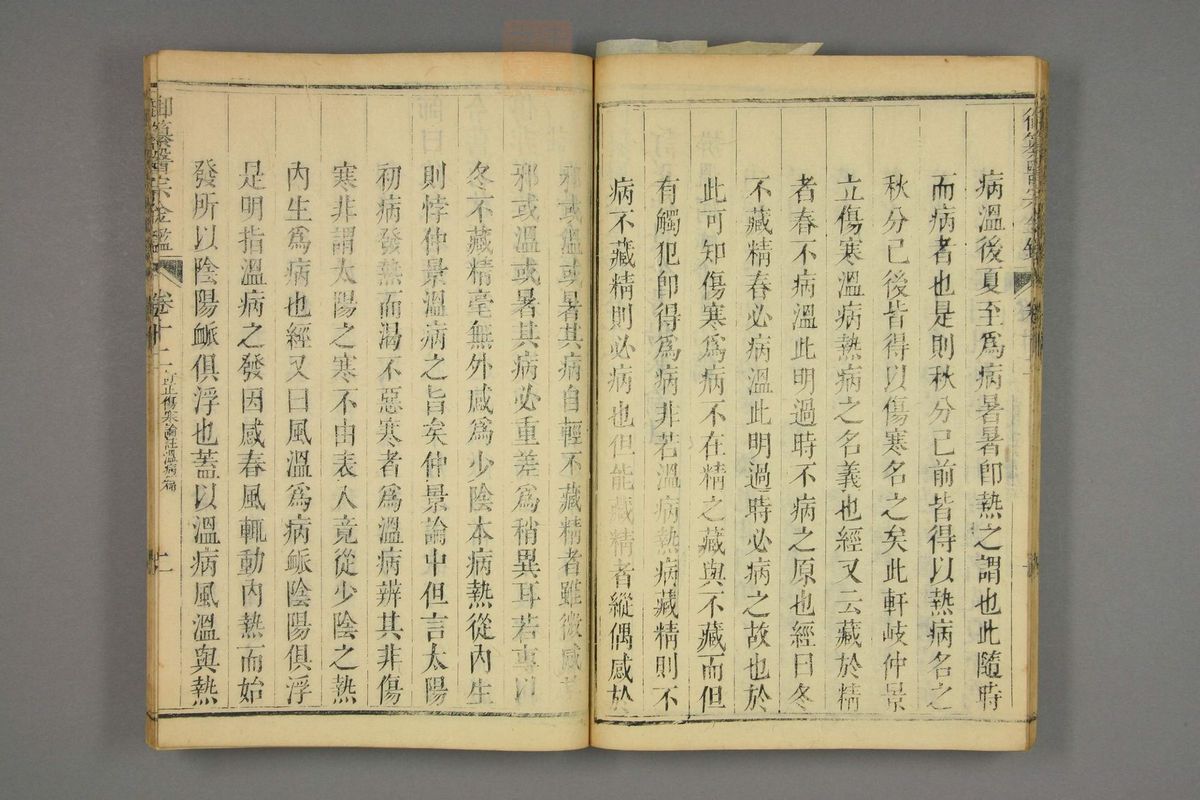 病溫後夏至爲病暑暑卽熱之謂也此隨時
而病者也是則秋分已前皆得以熱病名之
秋分已後皆得以傷寒名之矣此軒岐仲景
立傷寒溫病熱病之名義也經又云藏於精
者春不病溫此明過時不病之原也經曰冬
不藏精春必病溫此明過時必病之故也於
此可知傷寒爲病不在精之藏與不藏而但
有觸犯卽得爲病非若溫病熱病藏精則不
病不藏精則必病也但能藏精者縱偶感於
邪或溫或暑其病自輕不藏精者雖微感於
邪或溫或暑其病必重差爲稍異耳若專以
冬不藏精毫無外感爲少陰本病熱從內生
則悖仲景溫病之旨矣仲景論中但言太陽
初病發熱而渴不惡寒者爲溫病辨其非傷
寒非謂太陽之寒不由表入竟從少陰之熱
內生爲病也經又曰風溫爲病脈陰陽俱浮
是明指溫病之發因感春風輒動內熱而始
發所以陰陽脈俱浮也蓋以溫病風溫與熱
御纂醫宗金鑑 卷十二 訂正傷寒論註溫病篇 二